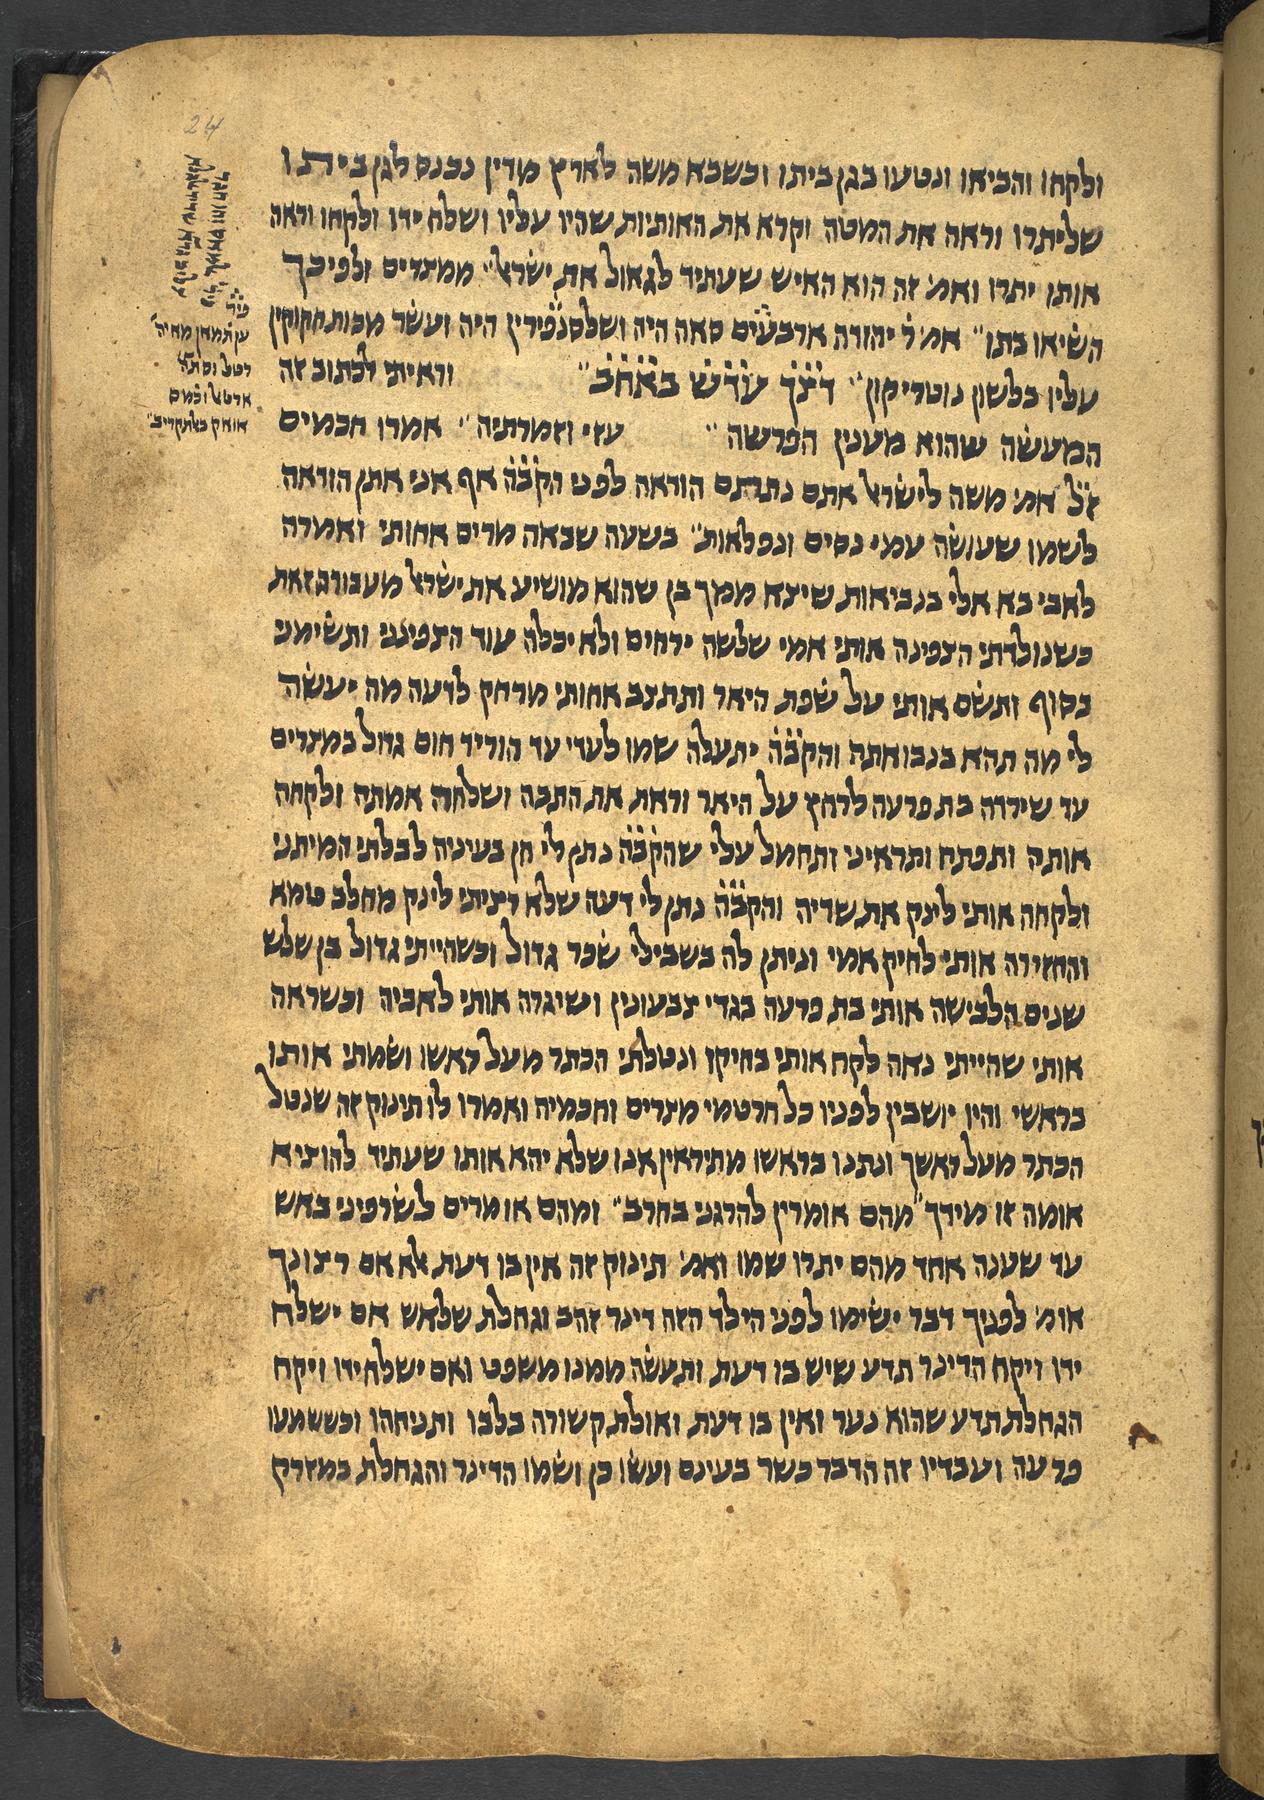 ולקחו והביאו ונטעו בגן ביתו וכשבא משה לארץ מודין נכנס לגן ביתו
שליתרו וראה את המטה וקרא את האותיות שהיו עליו ושלח ידו ולקחו וראה
אותו יתרו ואמ׳ זה הוא האיש שעתיד לגאול את ישראל ממצרים ולפיכך
השיאו בתו אמ׳ ר׳ יהודה ארבעים סאה היה ושלסנפירין היה ועשר מכות חקוקין
עליו בלשון נוטריקון דצך עדש באחב וראיתי לכתוב זה
המעשה שהוא מענין הפרשה עזי וזמרתיה אמרו חכמים
ז״ל אמ׳ משה לישראל אתם נתתם הודאה לפני הקבה אף אני אתן הודאה
לשמו שעושה עמי נסים ונפלאות בשעה שבאה מרים אחותי ואמרה
לאבי בא אלי בנביאות שיצא ממך בן שהוא מושיע את ישראל מעבודה זאת
כשנולדתי הצפינה אותי אמי שלשה ירחים ולא יכלה עוד הצפינני ותשימני
בסוף ותשם אותי על שפת היאר ותתצב אחותי מרחק לדעה מה יעשה
לי מה תהא בנבואתה והקבה יתעלה שמו לעדי עד הוריד חום גדול במצרים
עד שירדה בת פרעה לרחץ על היאר וראת את התבה ושלחה אמתה ולקחה
אותה ותפתח ותראיני ותחמל עלי שהקבה נתן לי חן בעיניה לבלתי המיתני
ולקחה אותי לינק את שדיה והקבה נתן לי דעה שלא רציתי לינק מחלב טמא
והחזירה אותי לחיק אמי וניתן לה בשבילי שכר גדול וכשהייתי גדול בן שלש
שנים הלבישה אותי בת פרעה בגדי צבעונין ושיגרה אותי לאביה וכשראה
אותי שהייתי נאה לקח אותי בחיקו ונטלתי הכתר מעל ראשו ושמתי אותו
בראשי והיו יושבין לפניו כל חרטמי מצרים וחכמיה ואמרו לו תינוק זה שנטל
הכתר מעל ראשך ונתנו בראשו מתיראין אנו שלא יהא אותו שעתיד להוציא
אומה זו מידך מהם אומרין להרגני בחרב ומהם אומרים לשרפיני באש
עד שענה אחד מהם יתרו שמו ואמ׳ תינוק זה אין בו דעת אלא אם רצונך
אומ׳ לפניך דבר ישימו לפני הילד הזה דינר זהב וגחלת שלאש אם ישלח
ידו ויקח הדינר תדע שיש בו דעת ותעשה ממנו משפט ואם ישלח ידו ויקח
הגחלת תדע שהוא נער ואין בו דעת ואולת קשורה בלבו ותניחהו וכששמעו
פרעה ועבדיו זה הדבר כשר בעינם ועשו כן ושמו הדינר והגחלת במזרק
24